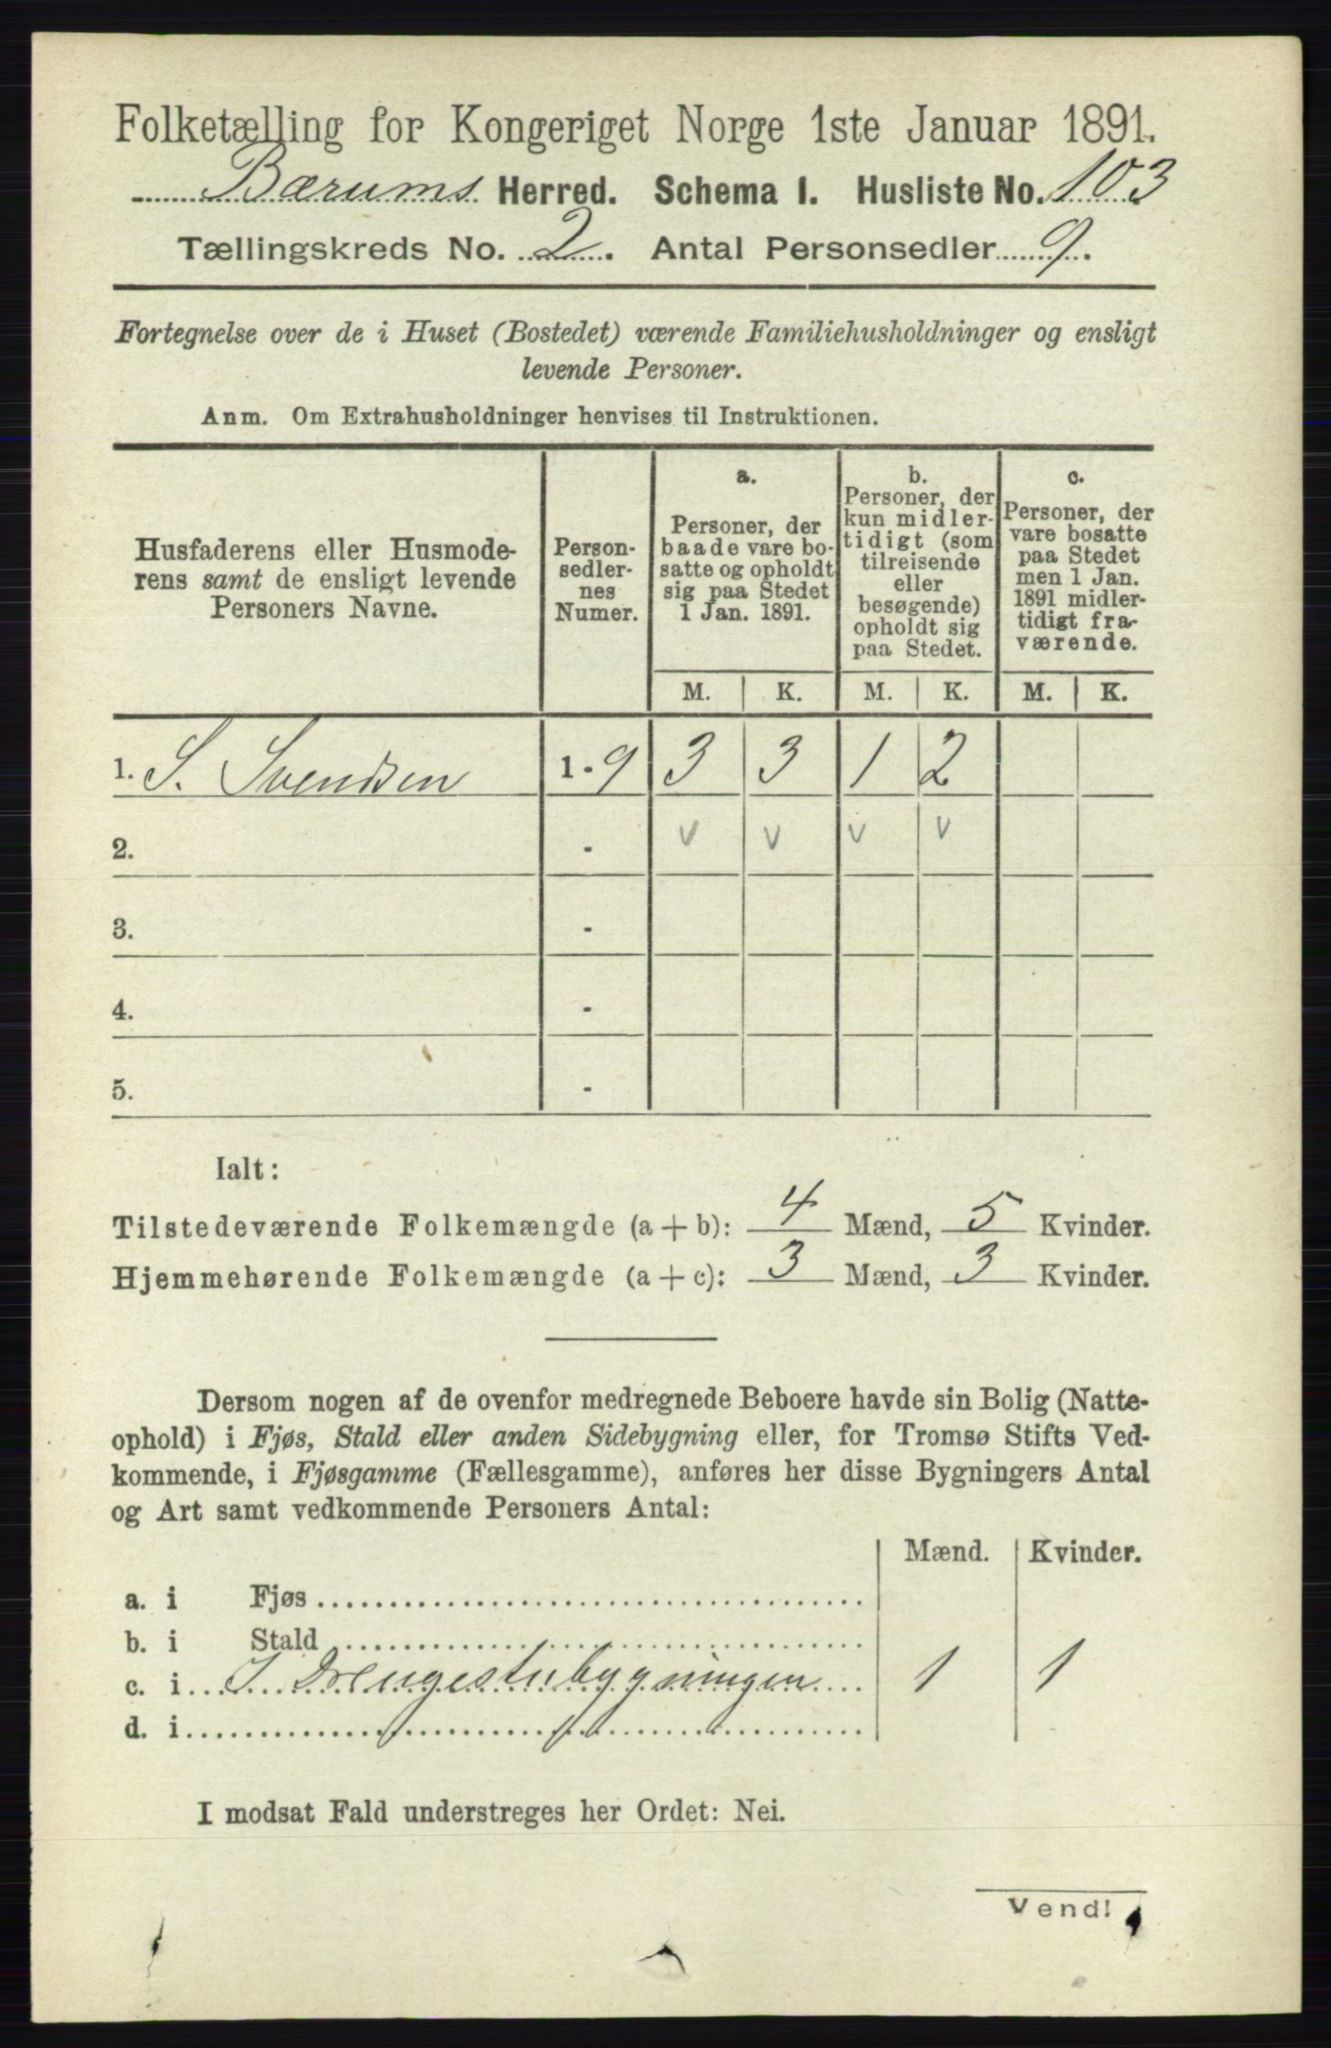 Folketælling for Kongeriget Norge 1ste Januar 1891.
Bærums Herred. Schema I. Husliste No. 103
Tællingskreds No. 2. Antal Personsedler 9.
Fortegnelse over de i Huset (Bostedet) værende Familiehusholdninger og ensligt
levende Personer.
Anm. Om Extrahusholdninger henvises til Instruktionen.
Husfaderens eller Husmode-
rens samt de ensligt levende
Personers Navne.
Person-
sedler-
nes
Numer.
a.
Personer, der
baade vare bo-
satte og opholdt
sig paa Stedet
1 Jan. 1891.
b.
Personer, der
kun midler-
tidigt (som
tilreisende
eller
besøgende)
opholdt sig
paa Stedet.
c.
Personer, der
vare bosatte
paa Stedet
men 1 Jan.
1891 midler-
tidigt fra-
værende.
M. K. M. K. M. K.
1. S. Svendsen 1 - 9 3 3 1 2
2. - v v v v
3. -
4. -
5. -
Ialt:
Tilstedeværende Folkemængde (a + b): 4 Mænd, 5 Kvinder.
Hjemmehørende Folkemængde (a + c): 3 Mænd, 3 Kvinder.
Dersom nogen af de ovenfor medregnede Beboere havde sin Bolig (Natte-
ophold) i Fjøs, Stald eller anden Sidebygning eller, for Tromsø Stifts Ved-
kommende, i Fjøsgamme (Fællesgamme), anføres her disse Bygningers Antal
og Art samt vedkommende Personers Antal:
Mænd. Kvinder.
a. i Fjøs
b. i Stald
c. i I Drengestubygningen 1 1
d. i
I modsat Fald understreges her Ordet: Nei.
Vend!